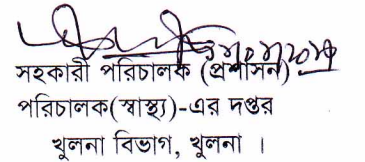 সহকারী পরিচালক (প্রশাসন)
পরিচালক(স্বাস্থ্য)-এর দপ্তর
খুলনা বিভাগ, খুলনা ।